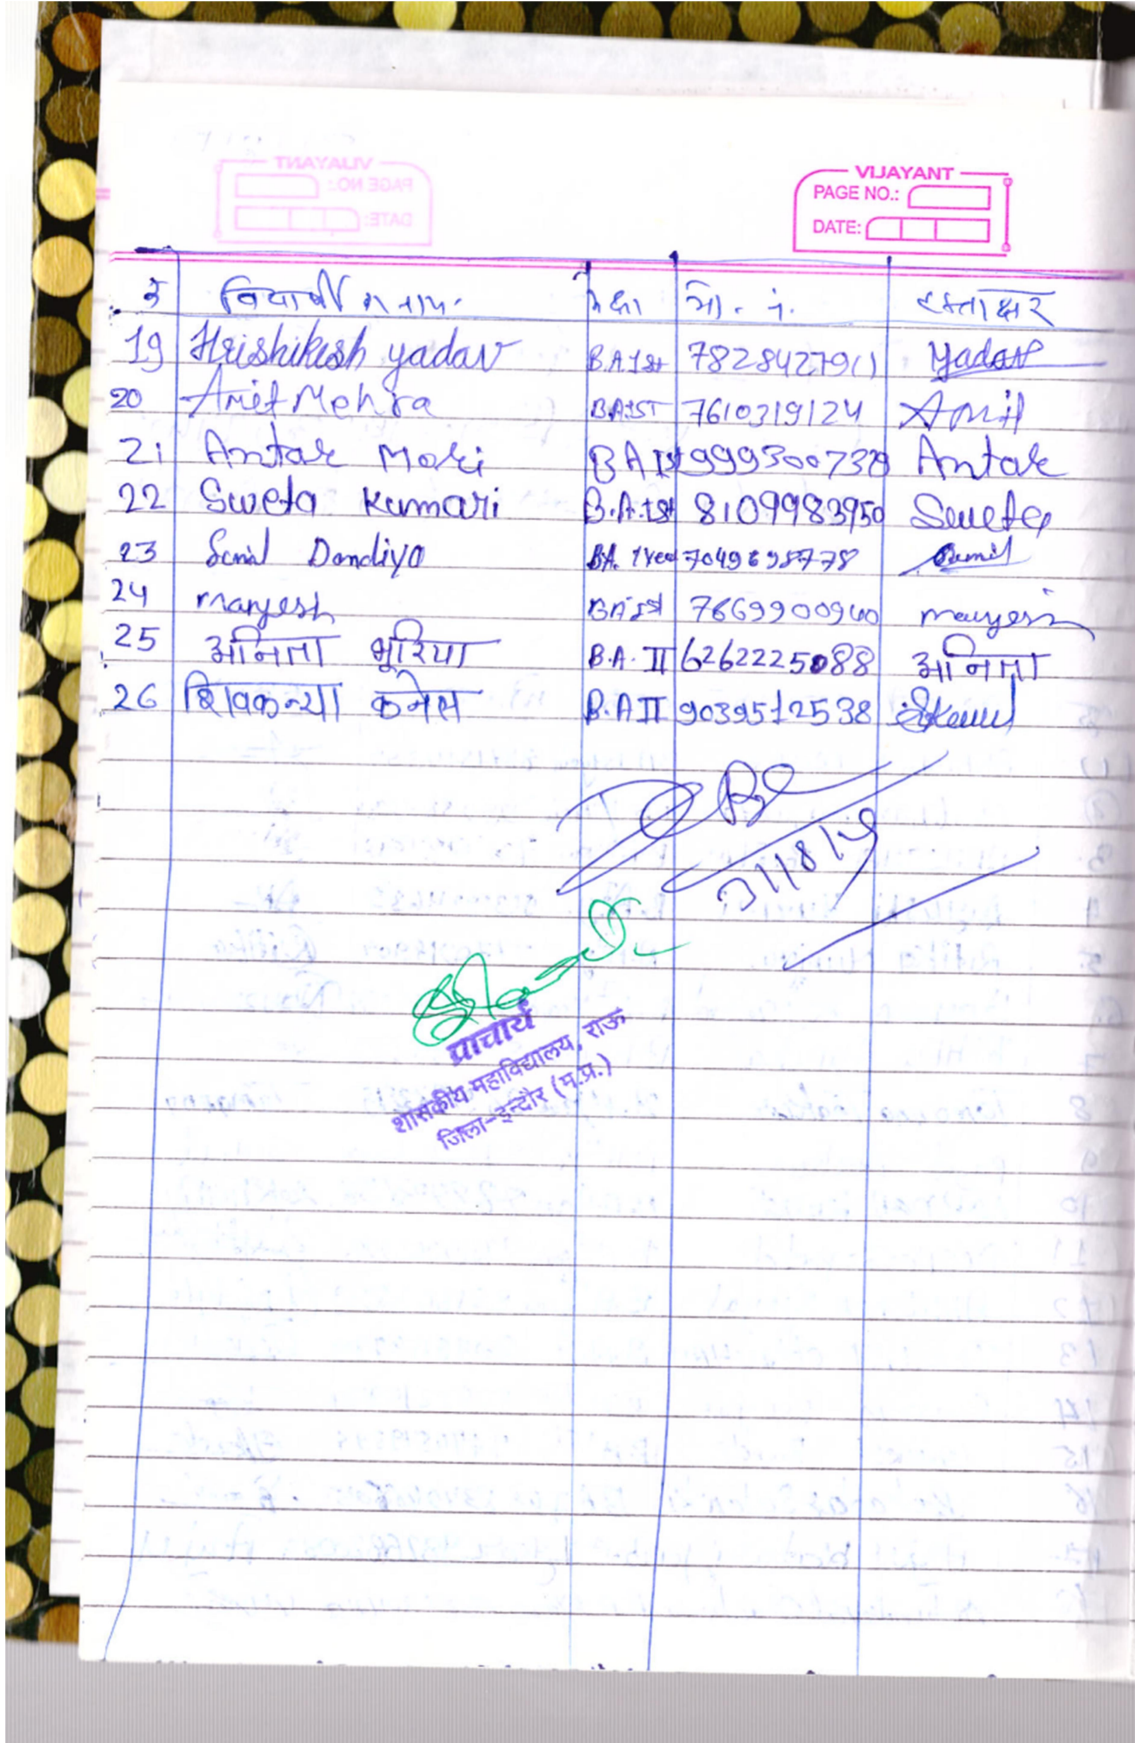 VIJAYANT
PAGE NO.:
DATE:
विद्यार्थी का नाम कक्षा मो. नं. हस्ताक्षर
19 Hrishikesh yadav B.A Ist 7828427911 Yadav
20 Amit Mehra BA IST 7610319124 Amit
21 Antar Mori BA Ist Antar
22 Sweta Kumari B.A. Ist 8109983950 Sweta
23 Dandiya BA. 1 Year
24 manjesh BA Ist 7669900940 manjesh
25 अनिता भूरिया B.A. II 6262225088 अनिता
26 शिवकन्या कनेस B.A II 9039512538
प्राचार्य
शासकीय महाविद्यालय, राऊ
जिला-इन्दौर (म.प्र.)